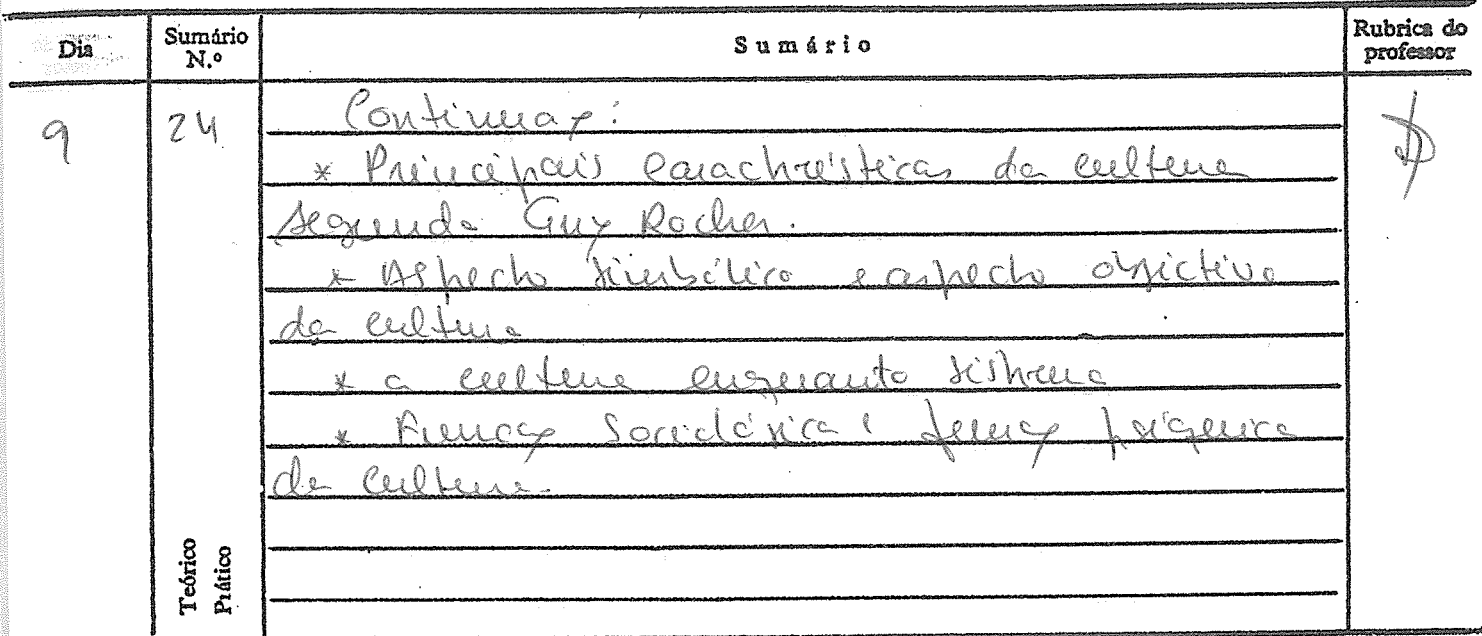 Dia
Sumário N.º
Sumário
Rubrica do professor
9
24
Continuaç:
* Principais características da cultura
segundo Guy Rocher.
* Aspecto simbólico e aspecto objectivo
da cultura
* a cultura enquanto sistema
* Função sociológica e função psíquica
da cultura.
Teórico
Prático